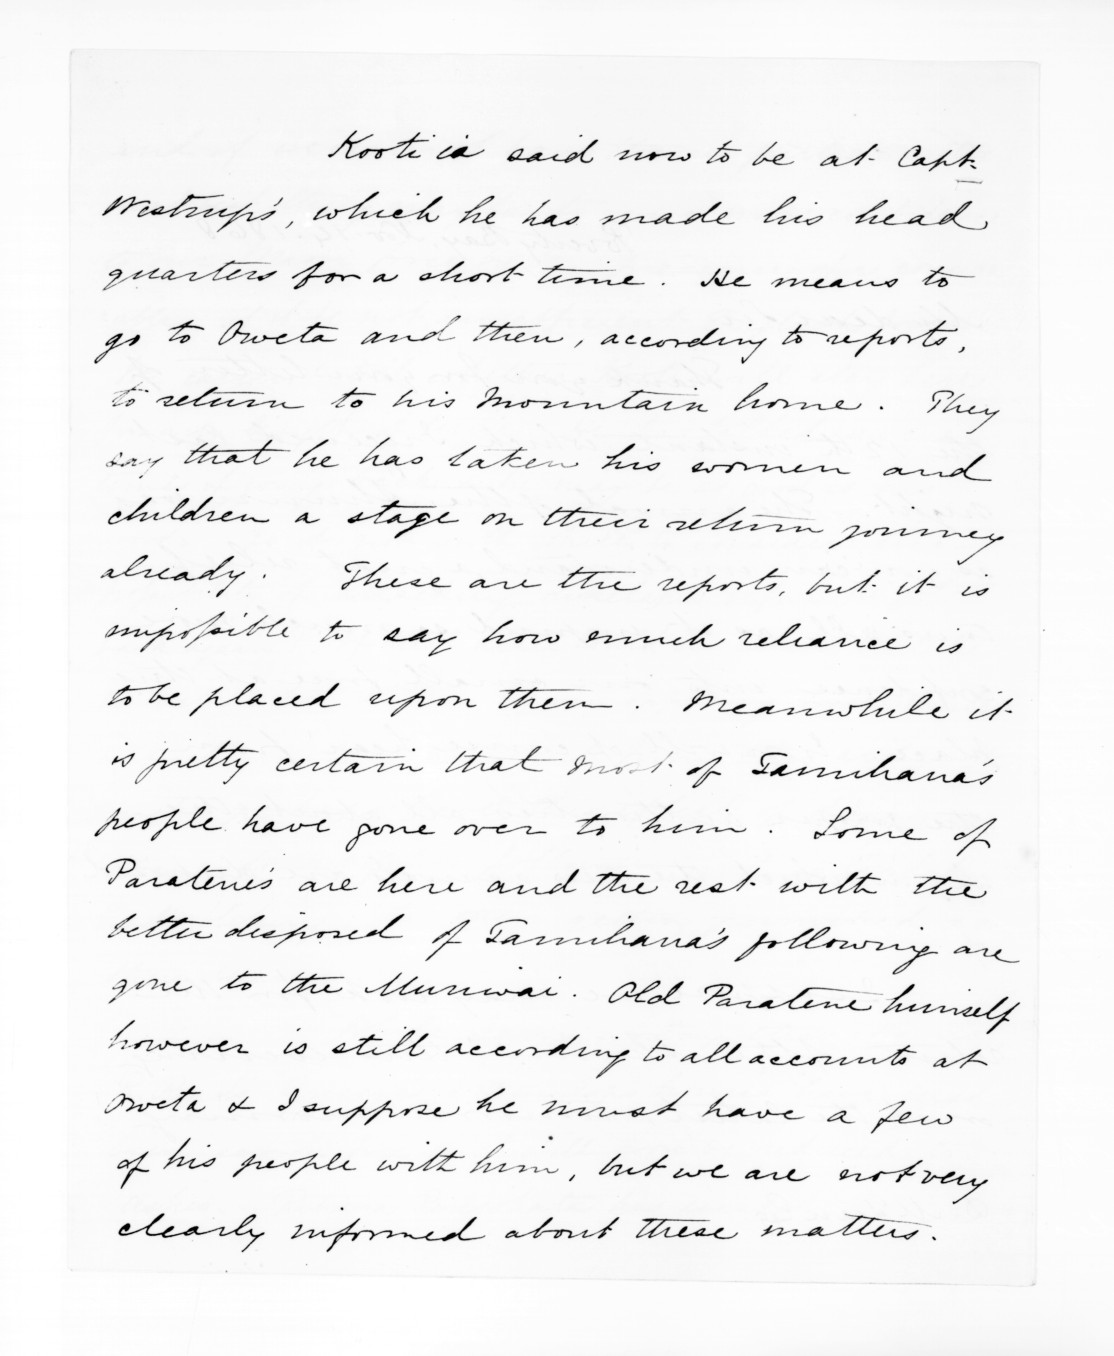 Kooti is said now to be at Capt.
Westrup's, which he has made his head
quarters for a short time. He means to
go to Oweta and then, according to reports,
to return to his Mountain home. They
say that he has taken his women and
children a stage on their return journey
already. These are the reports, but it is
impossible to say how much reliance is
to be placed upon them. Meanwhile it
is pretty certain that most of Tamihana's
people have gone over to him. Some of
Paratene's are here and the rest with the
better disposed of Tamihana's following are
gone to the Muriwai. Old Paratene himself
however is still according to all accounts at
Oweta & I suppose he must have a few
of his people with him, but we are not very
clearly informed about these matters.